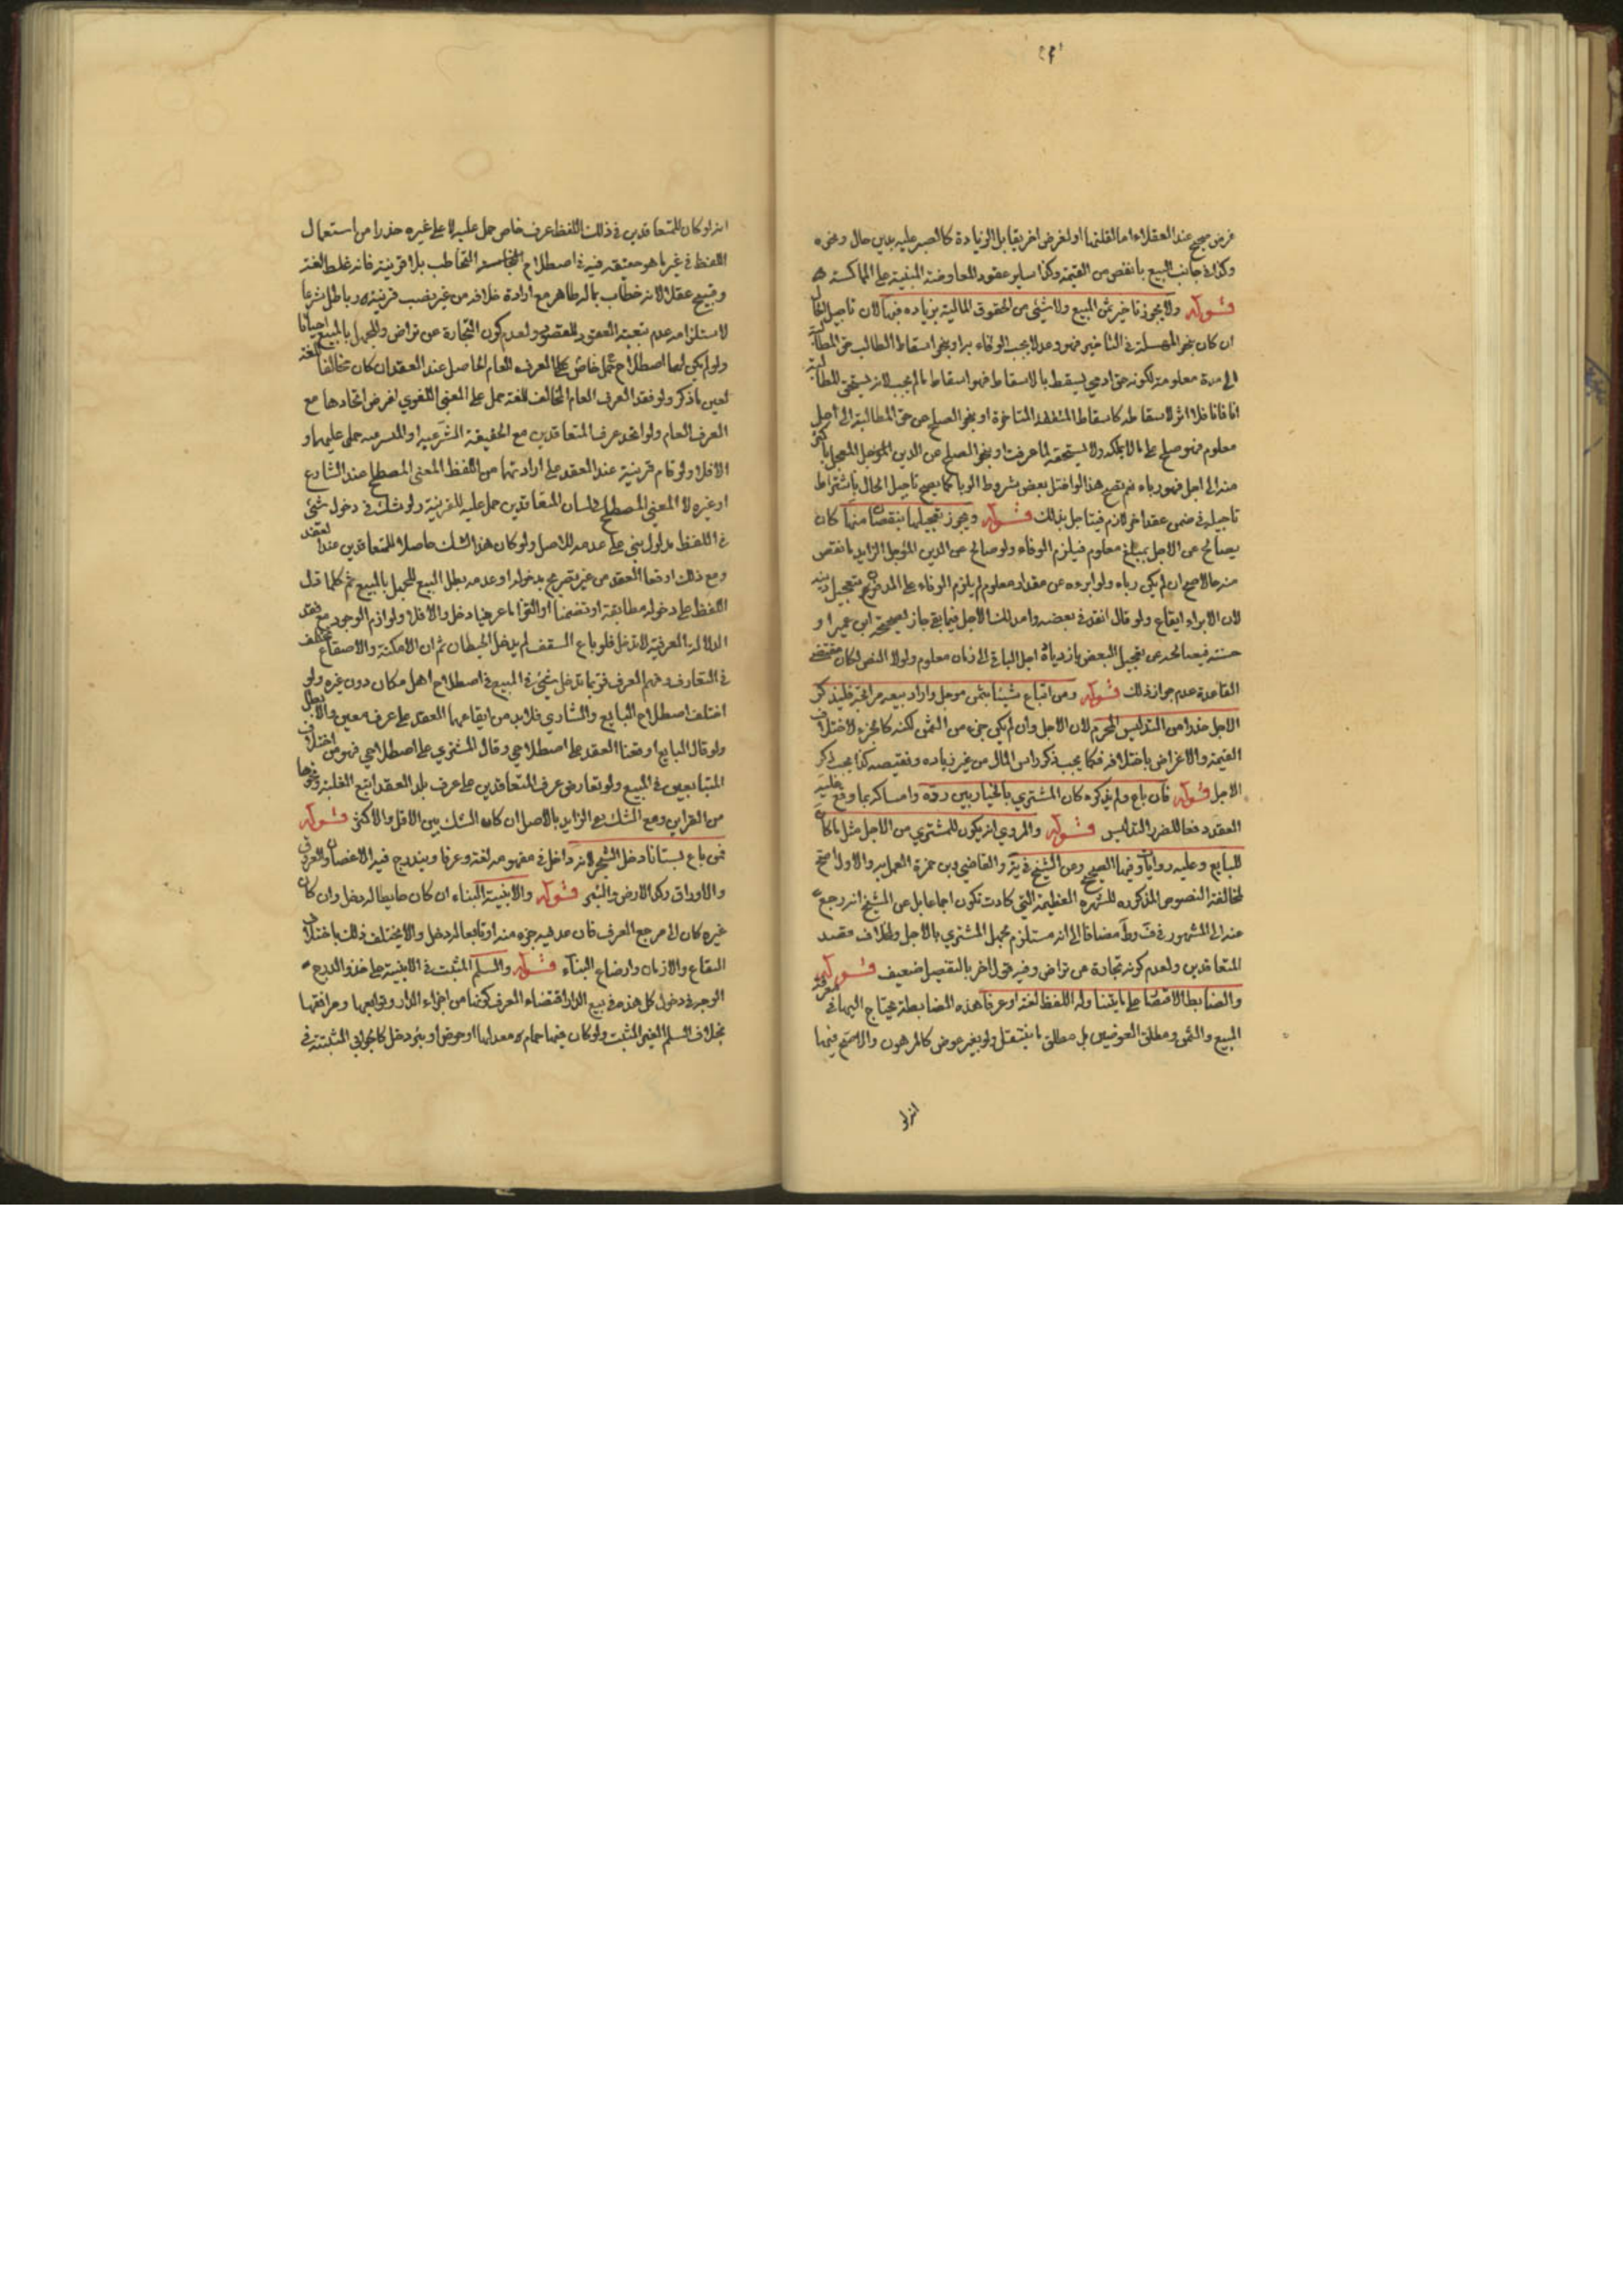 غرض صحيح عند العقلاء اما لقلتها او لغرض اخر يقابل الزيادة كالصبر عليه بدين حال ونحوه
وكذا في جانب البيع بانقص من القيمة وكذا ساير عقود المعاوضة المبنية على المماكسة
قوله ولا يجوز تاخير ثمن المبيع ولا شيئ من الحقوق المالية بزياده فيها لان تاجيل الحال
ان كان بنحو المهملة في التاخير فهو وعد لا يجب الوفاء به او بنحو اسقاط الطالب حق المطالبة
الى مدة معلومة لكونه حق ادمي يسقط بالاسقاط فهو اسقاط ما لم يجب لانه يستحق المطالبة
انا فانا فلا اثر لاسقاطه كاسقاط النفقة المتاخرة او بنحو الصلح عن حق المطالبة الى اجل
معلوم فهو صلح على ما لا يملكه ولا يستحقه لما عرفت او بنحو الصلح عن الدين المؤجل المعجل باكثر
منه الى اجل فهو رباء نعم يصح هذا لو اختل بعض شروط الربا كما يصح تاجيل الحال باشتراط
تاجيله في ضمن عقد اخر لازم فيتاجل بذلك قوله ويجوز تعجيلها بنقصان منها كان
يصالح عن الاجل بمبلغ معلوم فيلزم الوفاء ولو صالح عن الدين المؤجل الزايد بانقص
منه حالا صح ان لم يكن رباء ولو ابرءه عن مقدار معلوم لم يلزم الوفاء على المدفوع بتعجيل دينه
لان الابراء ايقاع ولو قال انقد في بعضه وامد لك الاجل فيما بقي جاز لصحيحة ابن عمير او
حسنته فيمن الحد عن تعجيل البعض بازدياد اجل الباقي الى زمان معلوم ولولا النص لكان مقتضى
القاعدة عدم جواز ذلك قوله ومن ابتاع شيئا بثمن موجل واراد بيعه مرابحة فليذكر
الاجل حذرا من التدليس المحرم لان الاجل وان لم يكن جزء من الثمن لكنه كالجزء لاختلاف
القيمة والاغراض باختلافه فكما يجب ذكر راس المال من غير زياده ونقيصه كذا يجب ذكر
الاجل قوله فان باع ولم يذكره كان المشتري بالخيار بين رده وامساكه بما وقع عليه
العقد دفعا للضرر التدليس قوله والمروي انه يكون للمشتري من الاجل مثل ما كان
للبايع وعليه روايات وفيها الصحيح وعن الشيخ في ية والقاضي وبن حمزة العمل به والاول اصح
لمخالفة النصوص المذكوره للشهره العظيمة التي كادت تكون اجماعا بل عن الشيخ انه رجع
عنه الى المشهور في ف وط مضافا الى انه مستلزم لجهل المشتري بالاجل وخلاف مقصد
المتعاقدين ولعدم كونه تجارة عن تراض وفيه قول اخر بالتفصيل ضعيف قوله
والضابط الاقتصار على ما يتناوله اللفظ لغة او عرفا هذه الضابطة يحتاج اليها في معرفة
المبيع والثمن ومطلق العوضين بل مطلق ما ينتقل ولو بغير عوض كالمرهون والاصح فيها
انه لو
انه لو كان للمتعاقدين في ذلك اللفظ عرف خاص حمل عليه لا على غيره حذرا من استعمال
اللفظ في غير ما هو حقيقه فيه في اصطلاح التخاطب بلا قرينة فانه غلط لغة
وقبيح عقلا لانه خطاب بما له ظاهر مع ارادة خلافه من غير نصب قرينة وباطل شرعا
لاستلزامه عدم تبعية العقود للقصود ولعدم كون التجارة عن تراض وللجهل بالمبيع احيانا
ولو لم يكن لهما اصطلاح خاص حمل على العرف العام الحاصل عند العقد ان كان مخالفا للغة
لعين ما ذكر ولو فقد العرف العام المخالف للغة حمل على المعنى اللغوي لفرض اتحادها مع
العرف العام ولو اتحد عرف المتعاقدين مع الحقيقة الشرعيه او المتشرعيه حمل عليهما و
الا فلا ولو قام قرينة عند العقد على ارادتهما من اللفظ المعنى المصطلح عند الشارع
او غيره لا المعنى المصطلح في لسان المتعاقدين حمل عليه للقرينة ولو شك في دخول شئ
في اللفظ مدلول بني على عدمه للاصل ولو كان هذا الشك حاصلا للمتعاقدين عند العقد
ومع ذلك اوقعا العقد من غير تصريح بدخوله او عدمه بطل البيع للجهل بالمبيع ثم كلما دل
اللفظ على دخوله مطابقة او تضمنا او التزاما عرفيا دخل والا فلا ولوازم الوجود مع فقد
الدلالة العرفية لا تدخل فلو باع السقف لم يدخل الحيطان ثم ان الامكنة والاصقاع مختلف
في التعارف وفهم العرف فربما تدخل شئ في المبيع في اصطلاح اهل مكان دون غيره ولو
اختلف اصطلاح البايع والشاري فلابد من ايقاعهما العقد على عرف معين والا بطل
ولو قال البايع اوقعنا العقد على اصطلاحي وقال المشتري على اصطلاحي فهو من اختلاف
المتبايعين في المبيع ولو تعارض عرف المتعاقدين على عرف بلد العقد اتبع الغلبة ونحوها
من القراين ومع الشك نفي الزايد بالاصل ان كان الشك بين الاقل والاكثر قوله
فمن باع بستانا دخل الشجر لانه داخل في مفهومه لغة وعرفا ويندرج فيه الاغصان والعروق
والاوراق وكذا الارض والبئر قوله والابنية البناء ان كان حايطا له دخل وان كان
غيره كان المرجع العرف فان عد فيه جزء منه او تابعا له دخل والا يختلف ذلك باختلاف
البقاع والازمان واوضاع البناء قوله والسلم المثبت في الابنية على حذو الدرج
الوجه في دخول كل هذه في بيع الدار اقتضاء العرف كونها من اجزاء الدار وتوابعها ومرافقها
بخلاف السلم الغير المثبت ولو كان فيها حمام معد لها او حوض او بئر دخل كالخوابي المثبتة في